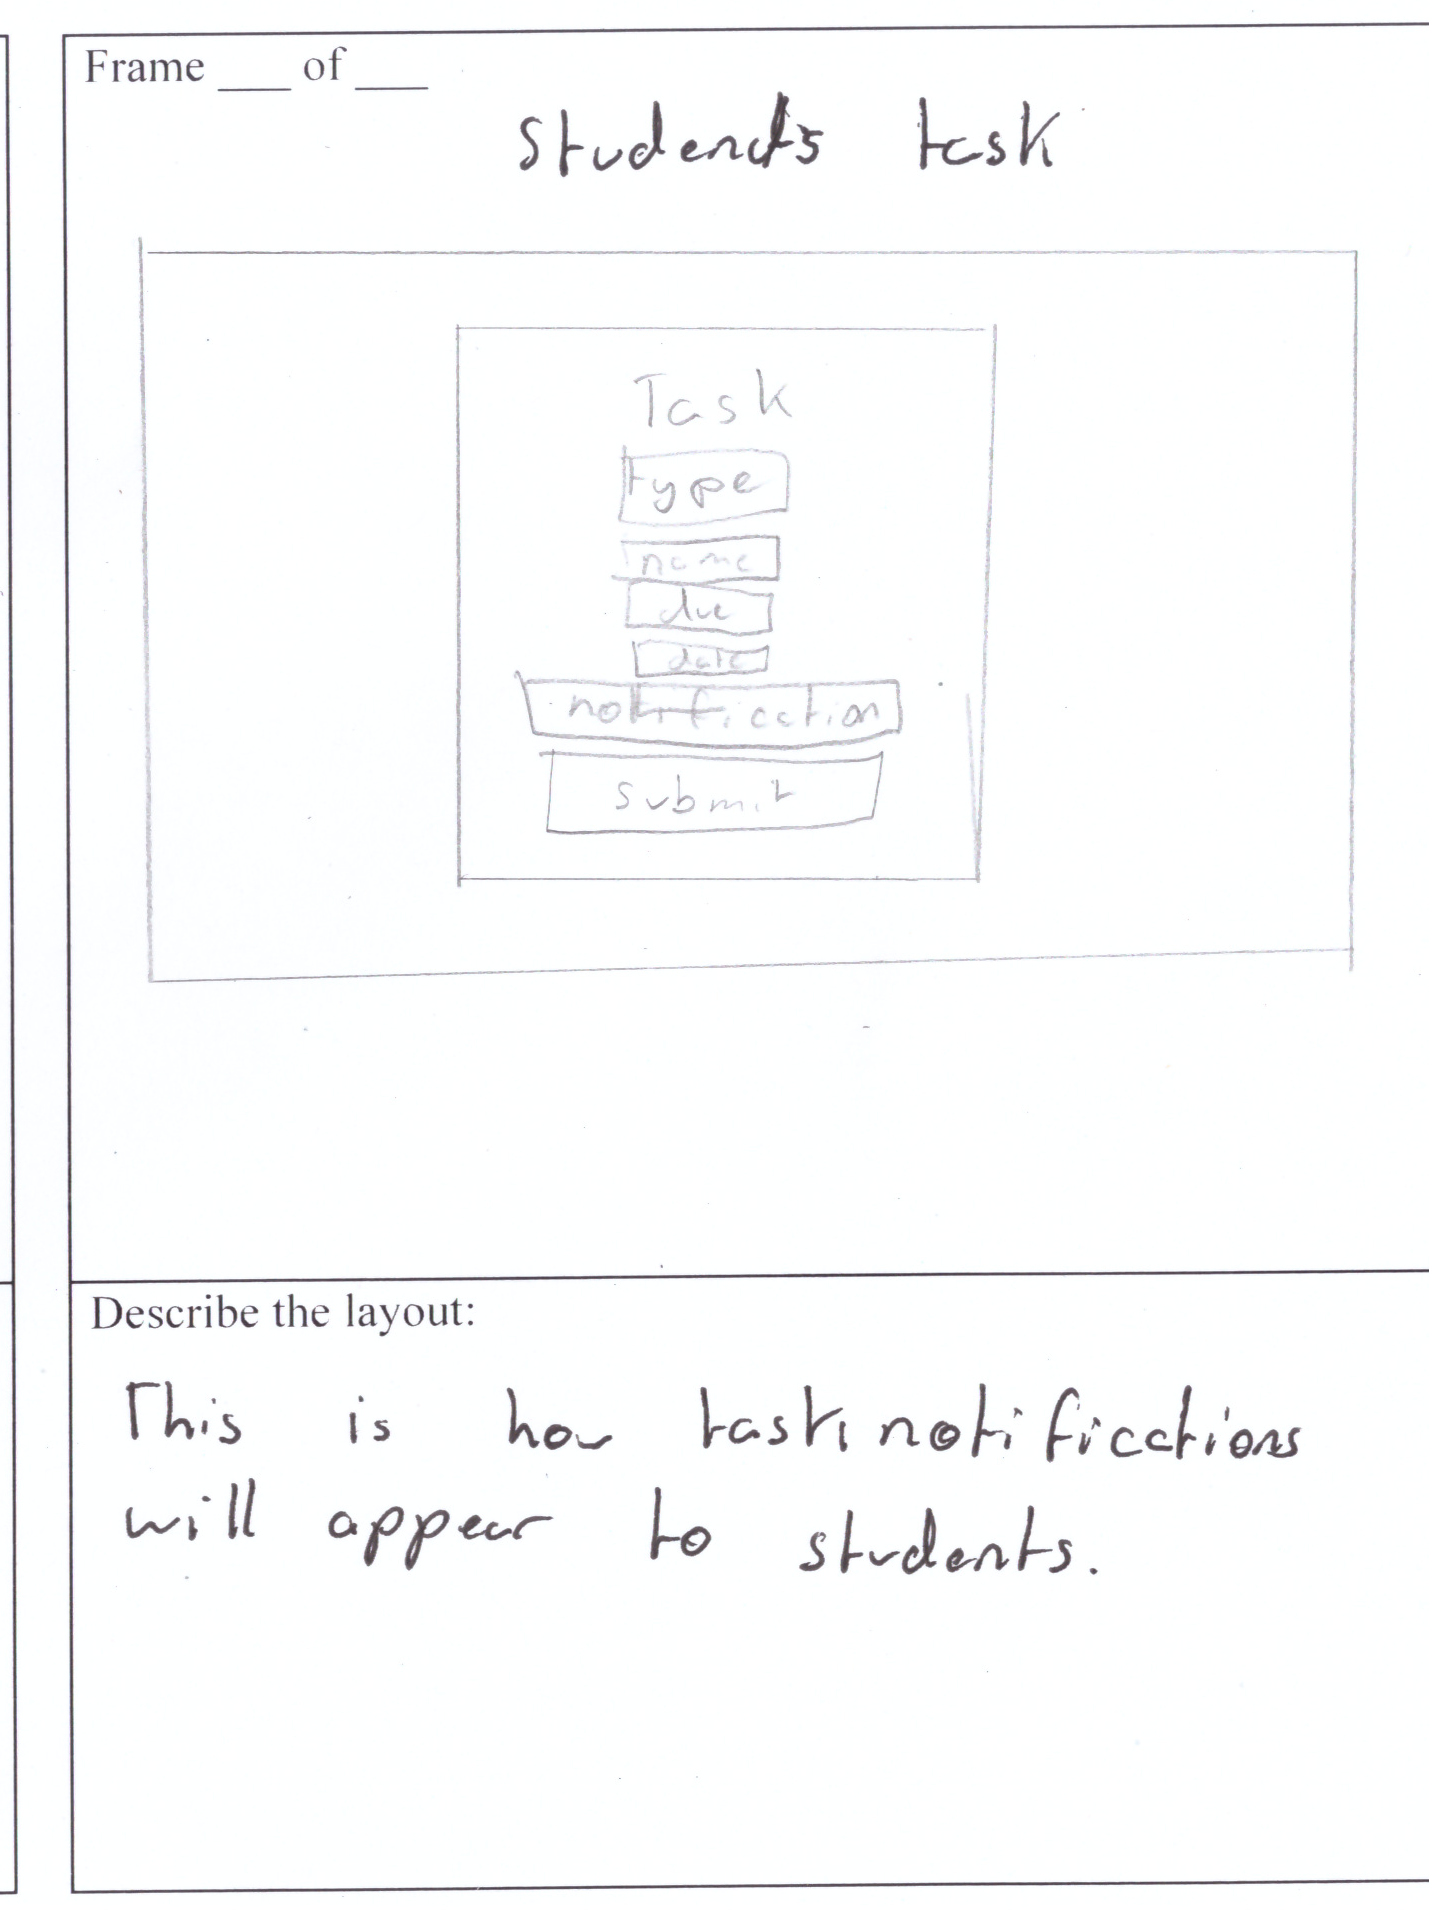 Frame ___ of ___
Students task
Task
type
name
due
date
notification
submit
Describe the layout:
This is how task notifications
will appear to students.